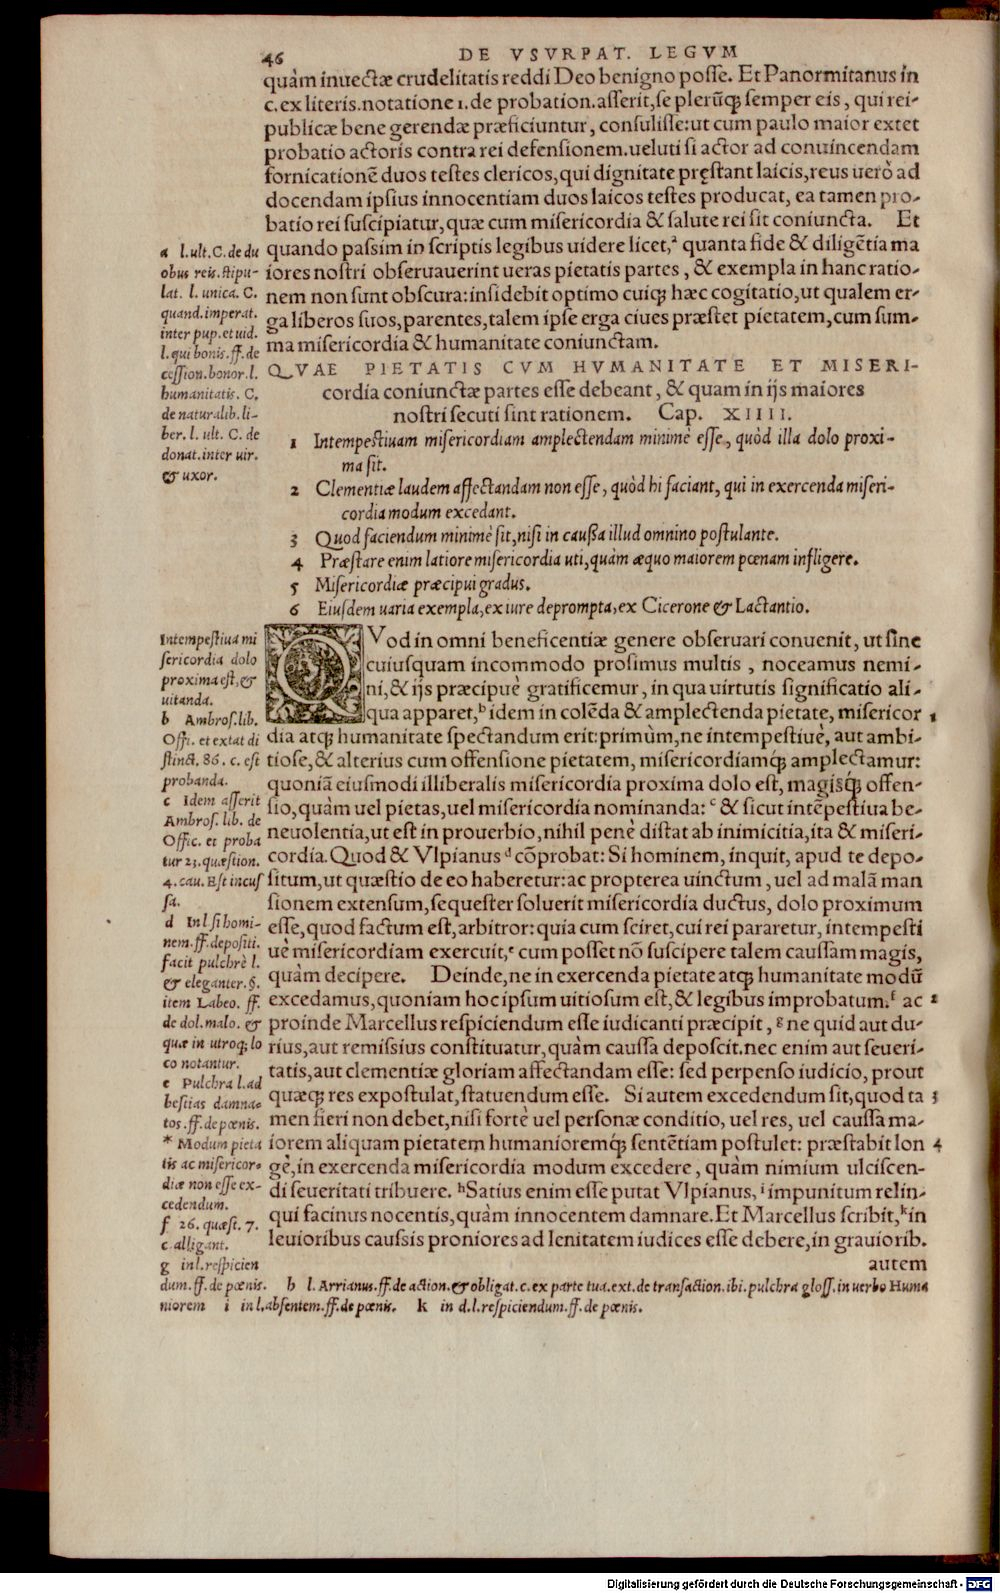 46 DE VSVRPAT. LEGVM
quàm inuectæ crudelitatis reddi Deo benigno posse. Et Panormitanus in
c. ex literis. notatione 1. de probation. asserit, se plerũq; semper eis, qui rei-
publicæ bene gerendæ præficiuntur, consulisse: ut cum paulo maior extet
probatio actoris contra rei defensionem. ueluti si actor ad conuincendam
fornicationẽ duos testes clericos, qui dignitate pręstant laicis, reus uerò ad
docendam ipsius innocentiam duos laicos testes producat, ea tamen pro-
batio rei suscipiatur, quæ cum misericordia & salute rei sit coniuncta. Et
quando passim in scriptis legibus uidere licet,ª quanta fide & diligẽtia ma
iores nostri obseruauerint ueras pietatis partes, & exempla in hanc ratio-
nem non sunt obscura: insidebit optimo cuiq; hæc cogitatio, ut qualem er-
ga liberos suos, parentes, talem ipse erga ciues præstet pietatem, cum sum-
ma misericordia & humanitate coniunctam.
a l. ult. C. de du
obus reis. stipu-
lat. l. unica. C.
quand. imperat.
inter pup. et uid.
l. qui bonis. ff. de
cession. bonor. l.
humanitatis. C.
de naturalib. li-
ber. l. ult. C. de
donat. inter uir.
& uxor.
QVAE PIETATIS CVM HVMANITATE ET MISERI-
cordia coniunctæ partes esse debeant, & quam in ijs maiores
nostri secuti sint rationem. Cap. XIIII.
1 Intempestiuam misericordiam amplectendam minimè esse, quòd illa dolo proxi-
ma sit.
2 Clementiæ laudem affectandam non esse, quòd hi faciant, qui in exercenda miseri-
cordia modum excedant.
3 Quod faciendum minimè sit, nisi in caussa illud omnino postulante.
4 Præstare enim latiore misericordia uti, quàm æquo maiorem pœnam infligere.
5 Misericordiæ præcipui gradus.
6 Eiusdem uaria exempla, ex iure deprompta, ex Cicerone & Lactantio.
QVod in omni beneficentiæ genere obseruari conuenit, ut sine
cuiusquam incommodo prosimus multis, noceamus nemi-
ni, & ijs præcipuè gratificemur, in qua uirtutis significatio ali-
qua apparet,ᵇ idem in colẽda & amplectenda pietate, misericor 1
dia atq; humanitate spectandum erit: primùm, ne intempestiuè, aut ambi-
tiose, & alterius cum offensione pietatem, misericordiamq́; amplectamur:
quoniã eiusmodi illiberalis misericordia proxima dolo est, magisq́; offen-
sio, quàm uel pietas, uel misericordia nominanda: ᶜ & sicut intẽpestiua be-
neuolentia, ut est in prouerbio, nihil penè distat ab inimicitia, ita & miseri-
cordia. Quod & Vlpianus ᵈ cõprobat: Si hominem, inquit, apud te depo-
situm, ut quæstio de eo haberetur: ac propterea uinctum, uel ad malã man
sionem extensum, sequester soluerit misericordia ductus, dolo proximum
esse, quod factum est, arbitror: quia cum sciret, cui rei pararetur, intempesti
uè misericordiam exercuit,ᵉ cum posset nõ suscipere talem caussam magis,
quàm decipere. Deinde, ne in exercenda pietate atq; humanitate modũ
excedamus, quoniam hoc ipsum uitiosum est, & legibus improbatum.ᶠ ac 2
proinde Marcellus respiciendum esse iudicanti præcipit, ᵍ ne quid aut du-
rius, aut remissius constituatur, quàm caussa deposcit. nec enim aut seueri-
tatis, aut clementiæ gloriam affectandam esse: sed perpenso iudicio, prout
quæq; res expostulat, statuendum esse. Si autem excedendum sit, quod ta 3
men fieri non debet, nisi fortè uel personæ conditio, uel res, uel caussa ma-
iorem aliquam pietatem humanioremq́; sentẽtiam postulet: præstabit lon 4
gè, in exercenda misericordia modum excedere, quàm nimium ulciscen-
di seueritati tribuere. ʰ Satius enim esse putat Vlpianus, ⁱ impunitum relin-
qui facinus nocentis, quàm innocentem damnare. Et Marcellus scribit, ᵏ in
leuioribus caussis proniores ad lenitatem iudices esse debere, in grauiorib.
autem
Intempestiua mi
sericordia dolo
proxima est, &
uitanda.
b Ambros. lib.
Offi. et extat di
stinct. 86. c. est
probanda.
c Idem asserit
Ambros. lib. de
Offic. et proba
tur 23. quæstion.
4. cau. Est iniusf
sa.
d In l. si homi-
nem. ff. depositi.
facit pulchrè l.
& eleganter. §.
item Labeo. ff.
de dol. malo. &
quæ in utroq; lo
co notantur.
e Pulchra l. ad
bestias damna-
tos. ff. de pœnis.
* Modum pieta
tis ac misericor-
diæ non esse ex-
cedendum.
f 26. quæst. 7.
c. alligant.
g in l. respicien
dum. ff. de pœnis. h l. Arrianus. ff. de action. & obligat. c. ex parte tua. ext. de transaction. ibi. pulchra gloss. in uerbo Huma
niorem i in l. absentem. ff. de pœnis. k in d. l. respiciendum. ff. de pœnis.
Digitalisierung gefördert durch die Deutsche Forschungsgemeinschaft - DFG